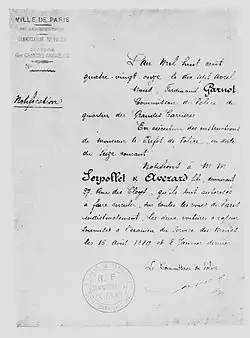 VILLE DE PARIS
COMMISSARIAT DE POLICE
des GRANDES CARRIERES
N°
Notification
L'an Mil huit cent
quatre-vingt onze le dix sept Avril
Nous, Ferdinand Garnot
Commissaire de Police du
quartier des Grandes Carrières
En exécution des instructions
de Monsieur le Préfet de Police, en date
du seize courant
Notifions à M.M.
Serpollet & Avezard demeurant
27 Rue des Cloys, qu'ils sont autorisés
à faire circuler, sur toutes les voies de Paris
indistinctement, les deux voitures à vapeur
soumises à l'examen du Service des Mines
les 15 Août 1890 et 2 Janvier dernier
Le Commissaire de Police
R.F.